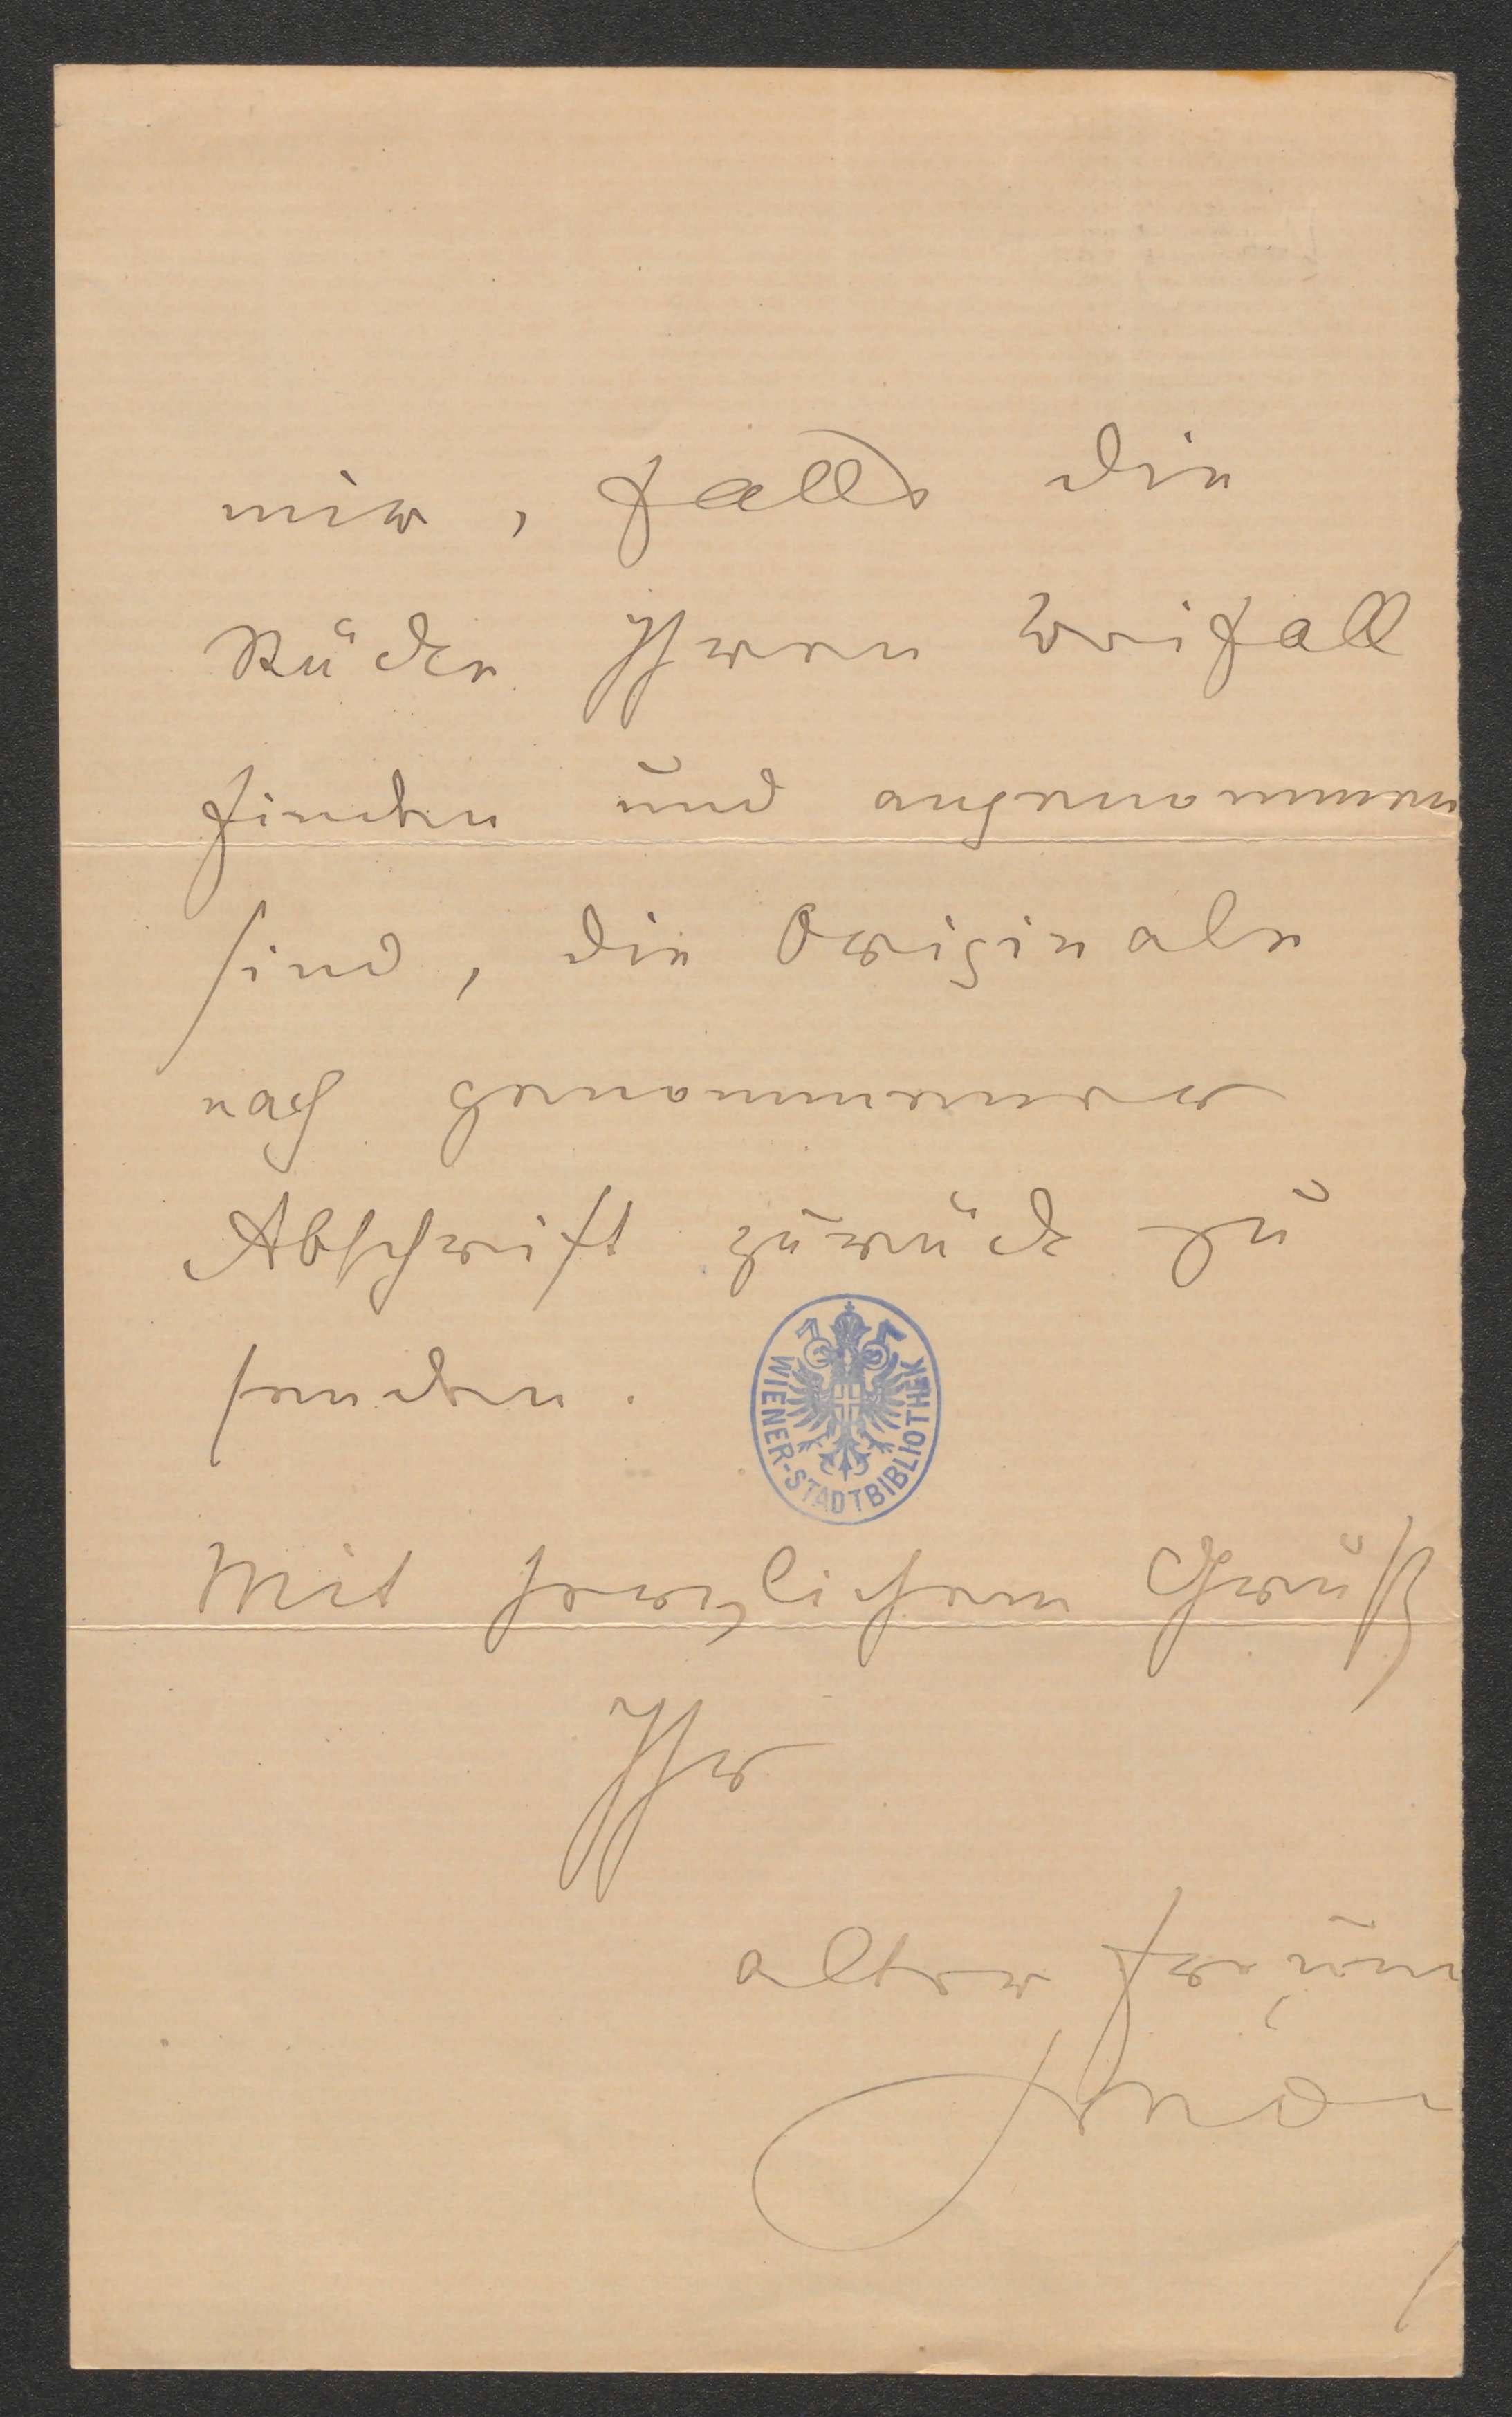 mir, falls die
Stücke Ihren Beifall
finden und angenommen
sind, die Originale
nach genommener
Abschrift zurück zu
senden.
WIENER-STADTBIBLIOTHEK
Mit herzlichem Gruß
Ihr
alter Freun